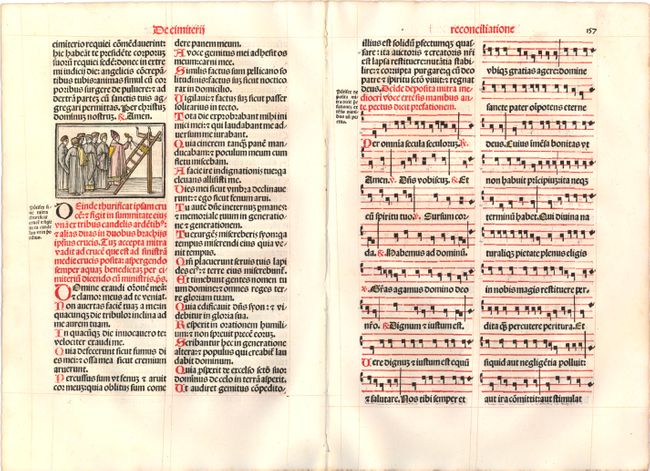 De cimiterij
cimiterio requiei cōmēdauerint:
hic habeāt te presidēte corporuȝ
suorū requiei sedē: donec in extre
mi iudicij die: angelicis cōcrepā
tibus tubis: animas simul cū cor
poribus surgere de puluere: ⁊ ad
dextrā partē cū sanctis tuis ag
gregari permittas. Per christuȝ
dominuȝ nostruȝ. ℟. Amen.
Deinde thurificat ipsam cru
cē: ⁊ figit in summitate eius
vnā ex tribus candelis ardētibꝰ:
⁊ alias duas in duobus brachijs
ipsius crucis. Tūc accepta mitra
vadit ad crucē que est ad sinistrā
medie crucis posita: aspergendo
semper aqua benedicta: per ci
miteriū dicendo cū ministris. ps.
Domine exaudi oratōneȝ meā:
⁊ clamor meus ad te veniat.
Non auertas faciē tuaȝ a me: in
quacūqȝ die tribulor: inclina ad
me aurem tuam.
In quacūqȝ die inuocauero te:
velociter exaudi me.
Quia defecerūt sicut fumus di
es mei: ⁊ ossa mea sicut cremium
aruerunt.
Percussus sum vt fenuȝ ⁊ aruit
cor meuȝ: quia oblitus sum come
dere panem meum.
A voce gemitus mei adhesit os
meum: carni mee.
Similis factus sum pellicano so
litudinis: factus suȝ sicut noctico
rax in domicilio.
Vigilaui: ⁊ factus suȝ sicut passer
solitarius in tecto.
Tota die exprobrabant mihi ini
mici mei: ⁊ qui laudabant me ad
uersum me iurabant.
Quia cinerem tanqȝ panē man
ducabam: ⁊ poculum meum cum
fletu miscebam.
A facie ire indignationis tue: qa
eleuans allisisti me.
Dies mei sicut vmbra declinaue
runt: ⁊ ego sicut fenum arui.
Tu autē dn̄e ineternuȝ pmanes:
⁊ memoriale tuum in generatio
ne ⁊ generationem.
Tu exurgēs misereberis syon: qa
tempus miserendi eius quia ve
nit tempus.
Qm̄ placuerunt seruis tuis lapi
des eiꝰ: ⁊ terre eius miserebunt̄.
Et timebunt gentes nomen tu
um domine: ⁊ omnes reges ter
re gloriam tuam.
Quia edificauit dn̄s syon: ⁊ vi
debitur in gloria sua.
Respexit in orationem humiliu
um: ⁊ non spreuit precē eoruȝ.
Scribantur hec in generatione
altera: ⁊ populus qui creabit̄ lau
dabit dominum.
Quia pspexit de excelso sctō suo:
dominus de celo in terrā aspexit.
Ut audiret gemitus cōpedito⁊
reconciliatione
157
illius est solidū psectumqȝ quas
sare: ita auctoris ⁊ creatoris nr̄i
est lapsa restituere: nutātia stabi
lire: ⁊ corrupta purgare: q̄ cū deo
patre ⁊ spiritu sctō viuit: ⁊ regnat
deus. Deide deposita mitra me
diocri voce erectis manibus an
te pectus dicit prefationem.
Per omnia secula seculoruȝ. ℟.
Amen. ℣. Dn̄s vobiscuȝ. ℟. Et
cū spiritu tuo. ℣. Sursum cor
da. ℟. Habemus ad dominū.
℣. Gratias agamus domino deo
nr̄o. ℟. Dignum ⁊ iustum est.
Vere dignum ⁊ iustum est equū
⁊ salutare. Nos tibi semper et
vbiqȝ gratias agere: domine
sancte pater oīpotens eterne
deus. Cuius īmēsa bonitas vt
non habuit prīcipiuȝ: ita neqȝ
terminū habet. Qui diuina na
turaliqȝ pietate plenus eligis
in nobis magis restituere pr.
dita qȝ percutere peritura. Et
siquid aut negligētia polluit:
aut ira cōmittit: aut stimulat